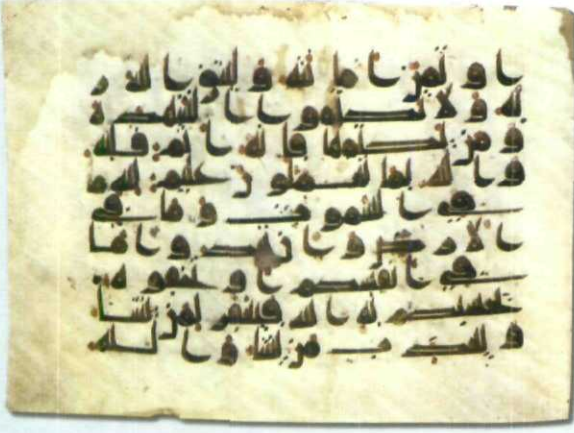 اوتمن امانته وليتق الله ر
به ولا تكتموا الشهدة
ومن يكتمها فانه اثم قلبه
والله بما تعملون عليم لله ما
في السموت وما في
الارض وان تبدوا ما
في انفسكم او تخفوه
يحاسبكم به الله فيغفر لمن يشا
ويعذب من يشا والله